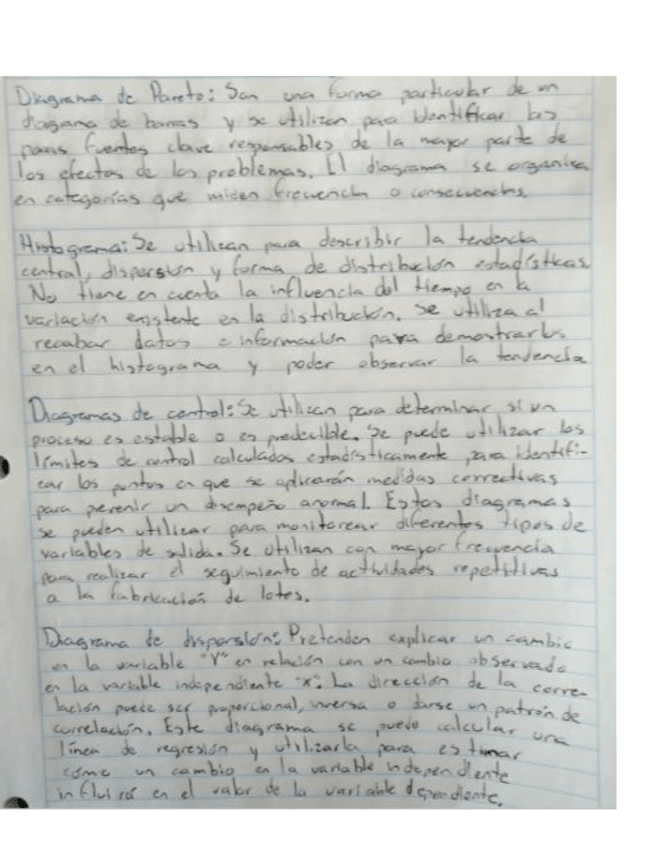 Diagrama de Pareto: Son una forma particular de un
diagrama de barras y se utilizan para identificar las
pocas fuentes clave responsables de la mayor parte de
los efectos de los problemas. El diagrama se organiza
en categorías que miden frecuencia o consecuencias.
Histograma: Se utilizan para describir la tendencia
central, dispersión y forma de distribución estadísticas.
No tiene en cuenta la influencia del tiempo en la
variación existente en la distribución. Se utiliza al
recabar datos e información para demostrarlos
en el histograma y poder observar la tendencia
Diagramas de control: Se utilizan para determinar si un
proceso es estable o es predecible. Se puede utilizar los
límites de control calculados estadísticamente para identifi-
car los puntos en que se aplicarán medidas correctivas
para prevenir un desempeño anormal. Estos diagramas
se pueden utilizar para monitorear diferentes tipos de
variables de salida. Se utilizan con mayor frecuencia
para realizar el seguimiento de actividades repetitivas
a la fabricación de lotes.
Diagrama de dispersión: Pretenden explicar un cambio
en la variable "Y" en relación con un cambio observado
en la variable independiente "x". La dirección de la corre-
lación puede ser proporcional, inversa o darse un patrón de
correlación. Este diagrama se puede calcular una
línea de regresión y utilizarla para estimar
cómo un cambio en la variable independiente
influirá en el valor de la variable dependiente.